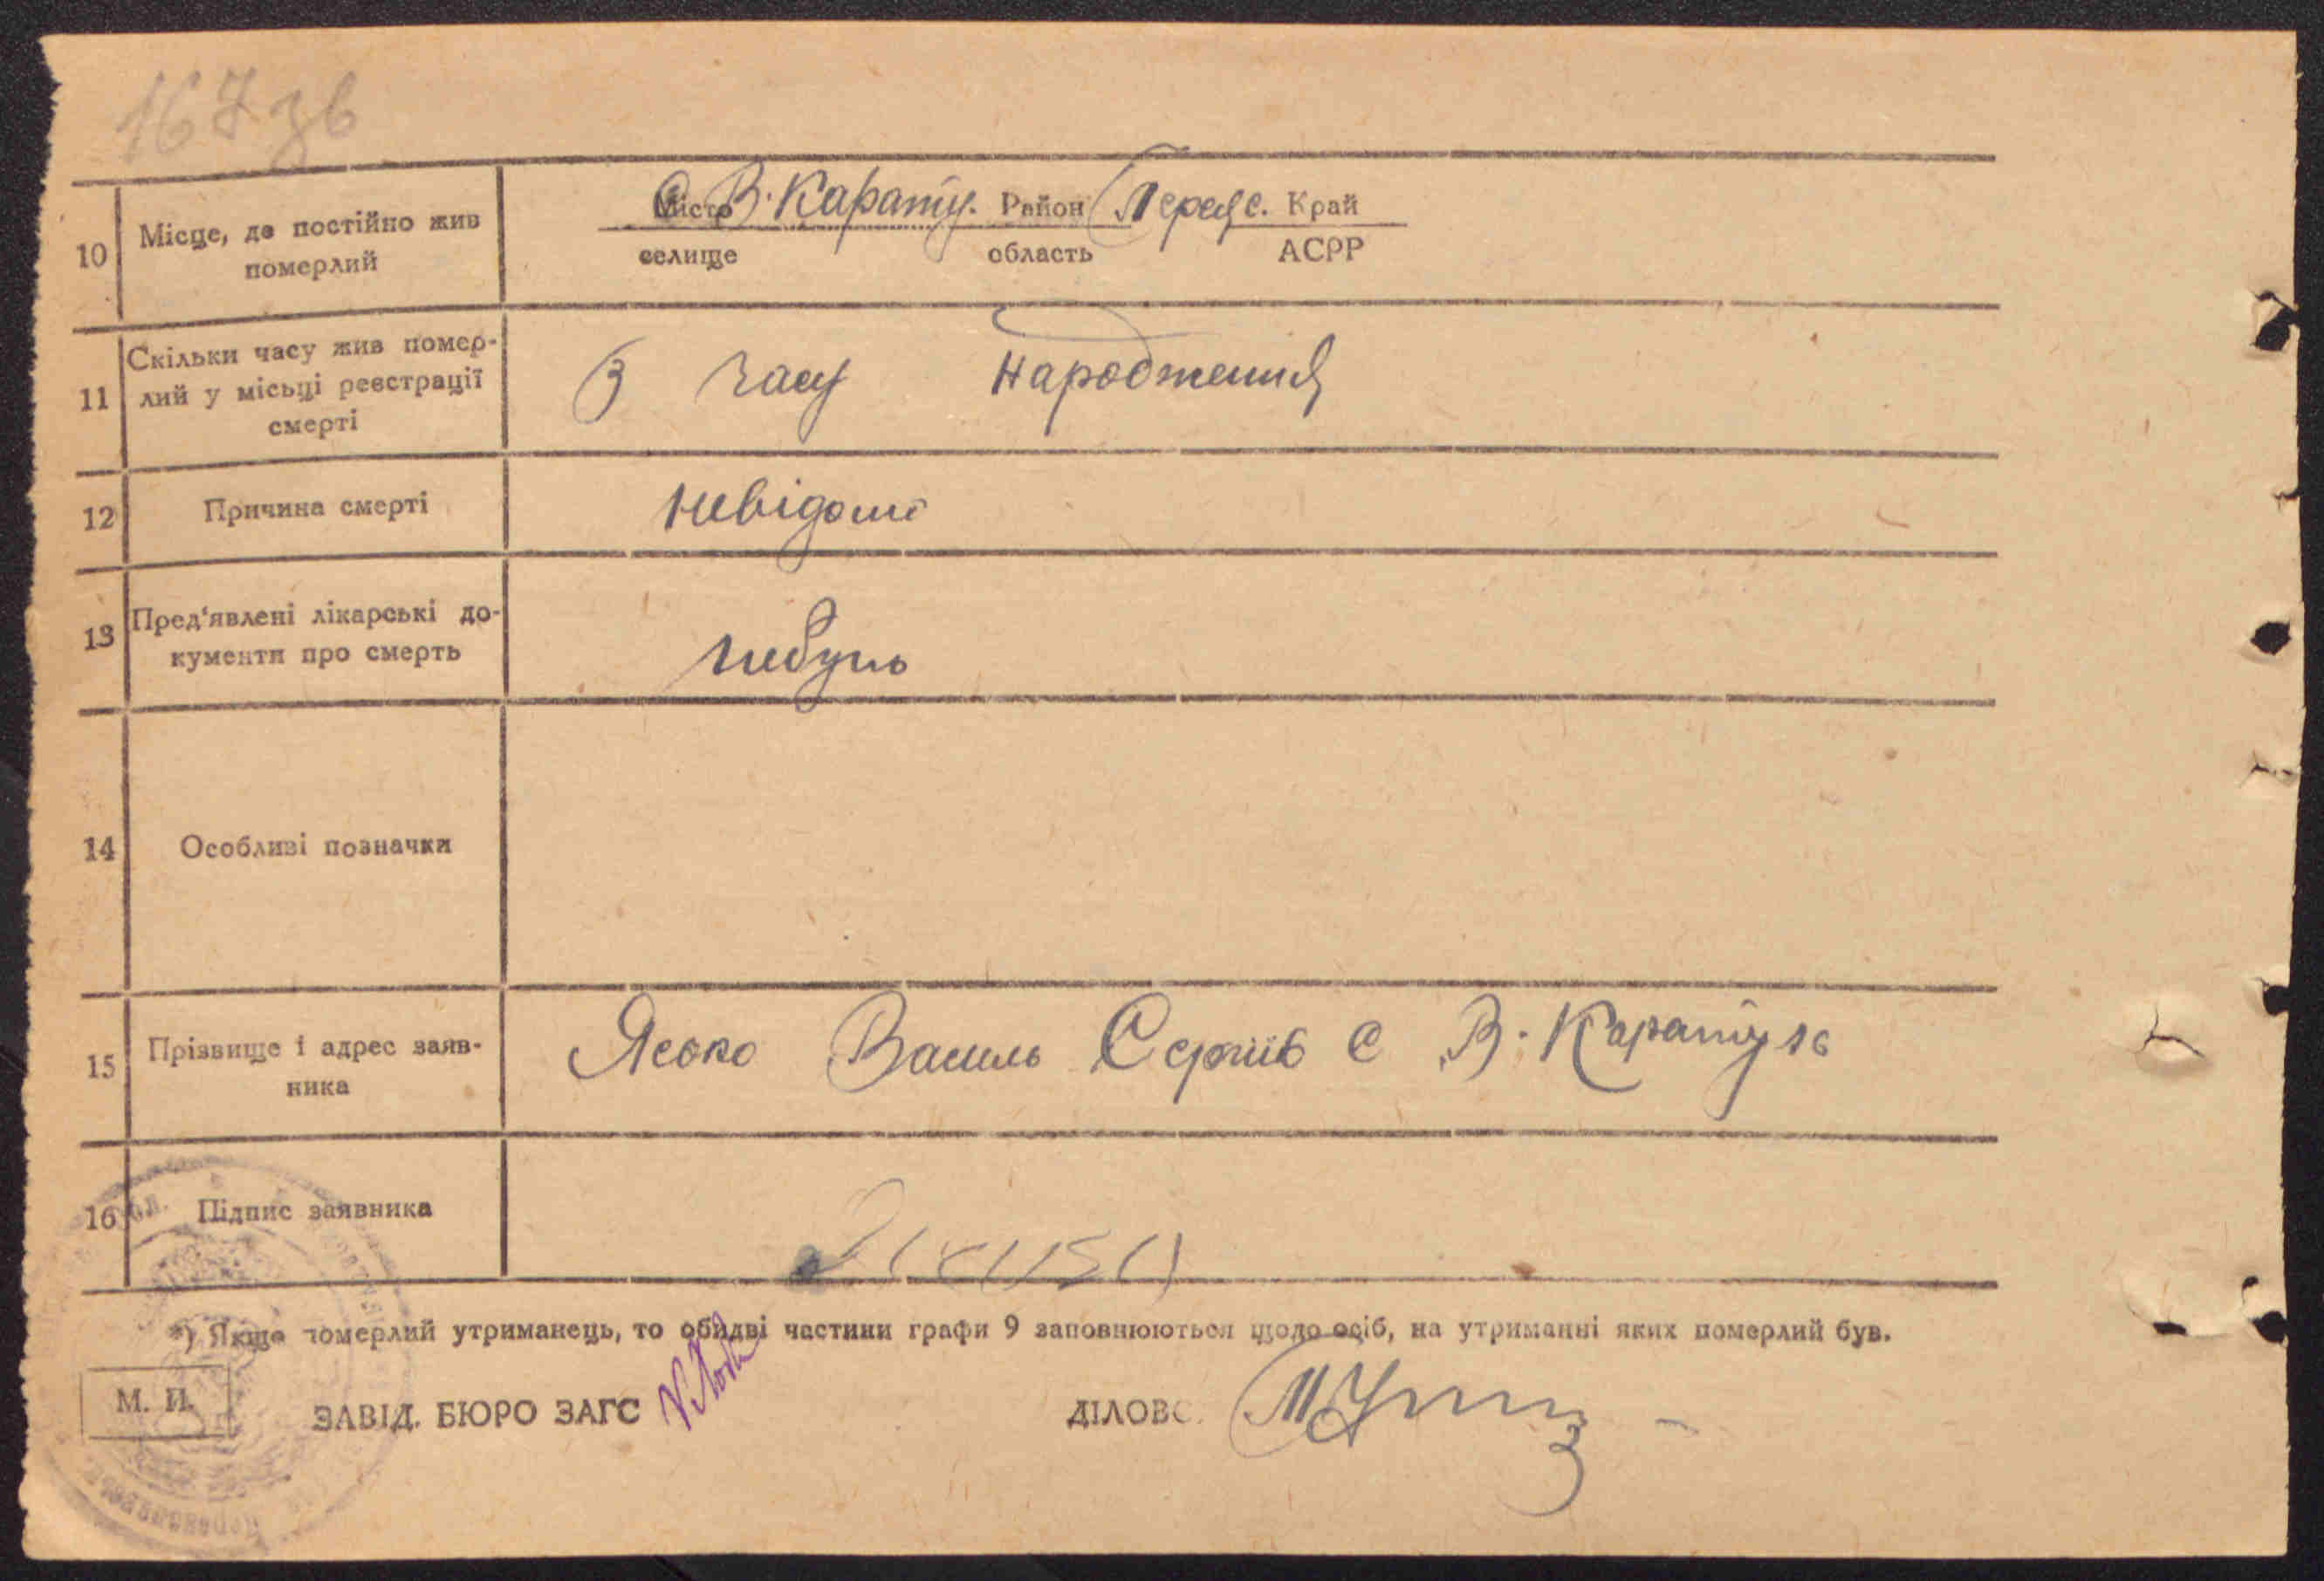 167 зв
10
Місце, де постійно жив
померлий
С. В. Карату. Район Переяс. Край
Місто
селище область АСРР
11
Скільки часу жив помер-
лий у місьці реєстрації
смерті
З часу народження
12
Причина смерті
невідомі
13
Пред'явлені лікарські до-
кументи про смерть
14
Особливі позначки
15
Прізвище і адрес заяв-
ника
Ясько Василь Сергіїв с В. Каратуль
16
Підпис заявника
*) Якщо померлий утриманець, то обидві частини графи 9 заповнюються щодо осіб, на утриманні яких померлий був.
М. П.
ЗАВІД. БЮРО ЗАГС
ДІЛОВС.